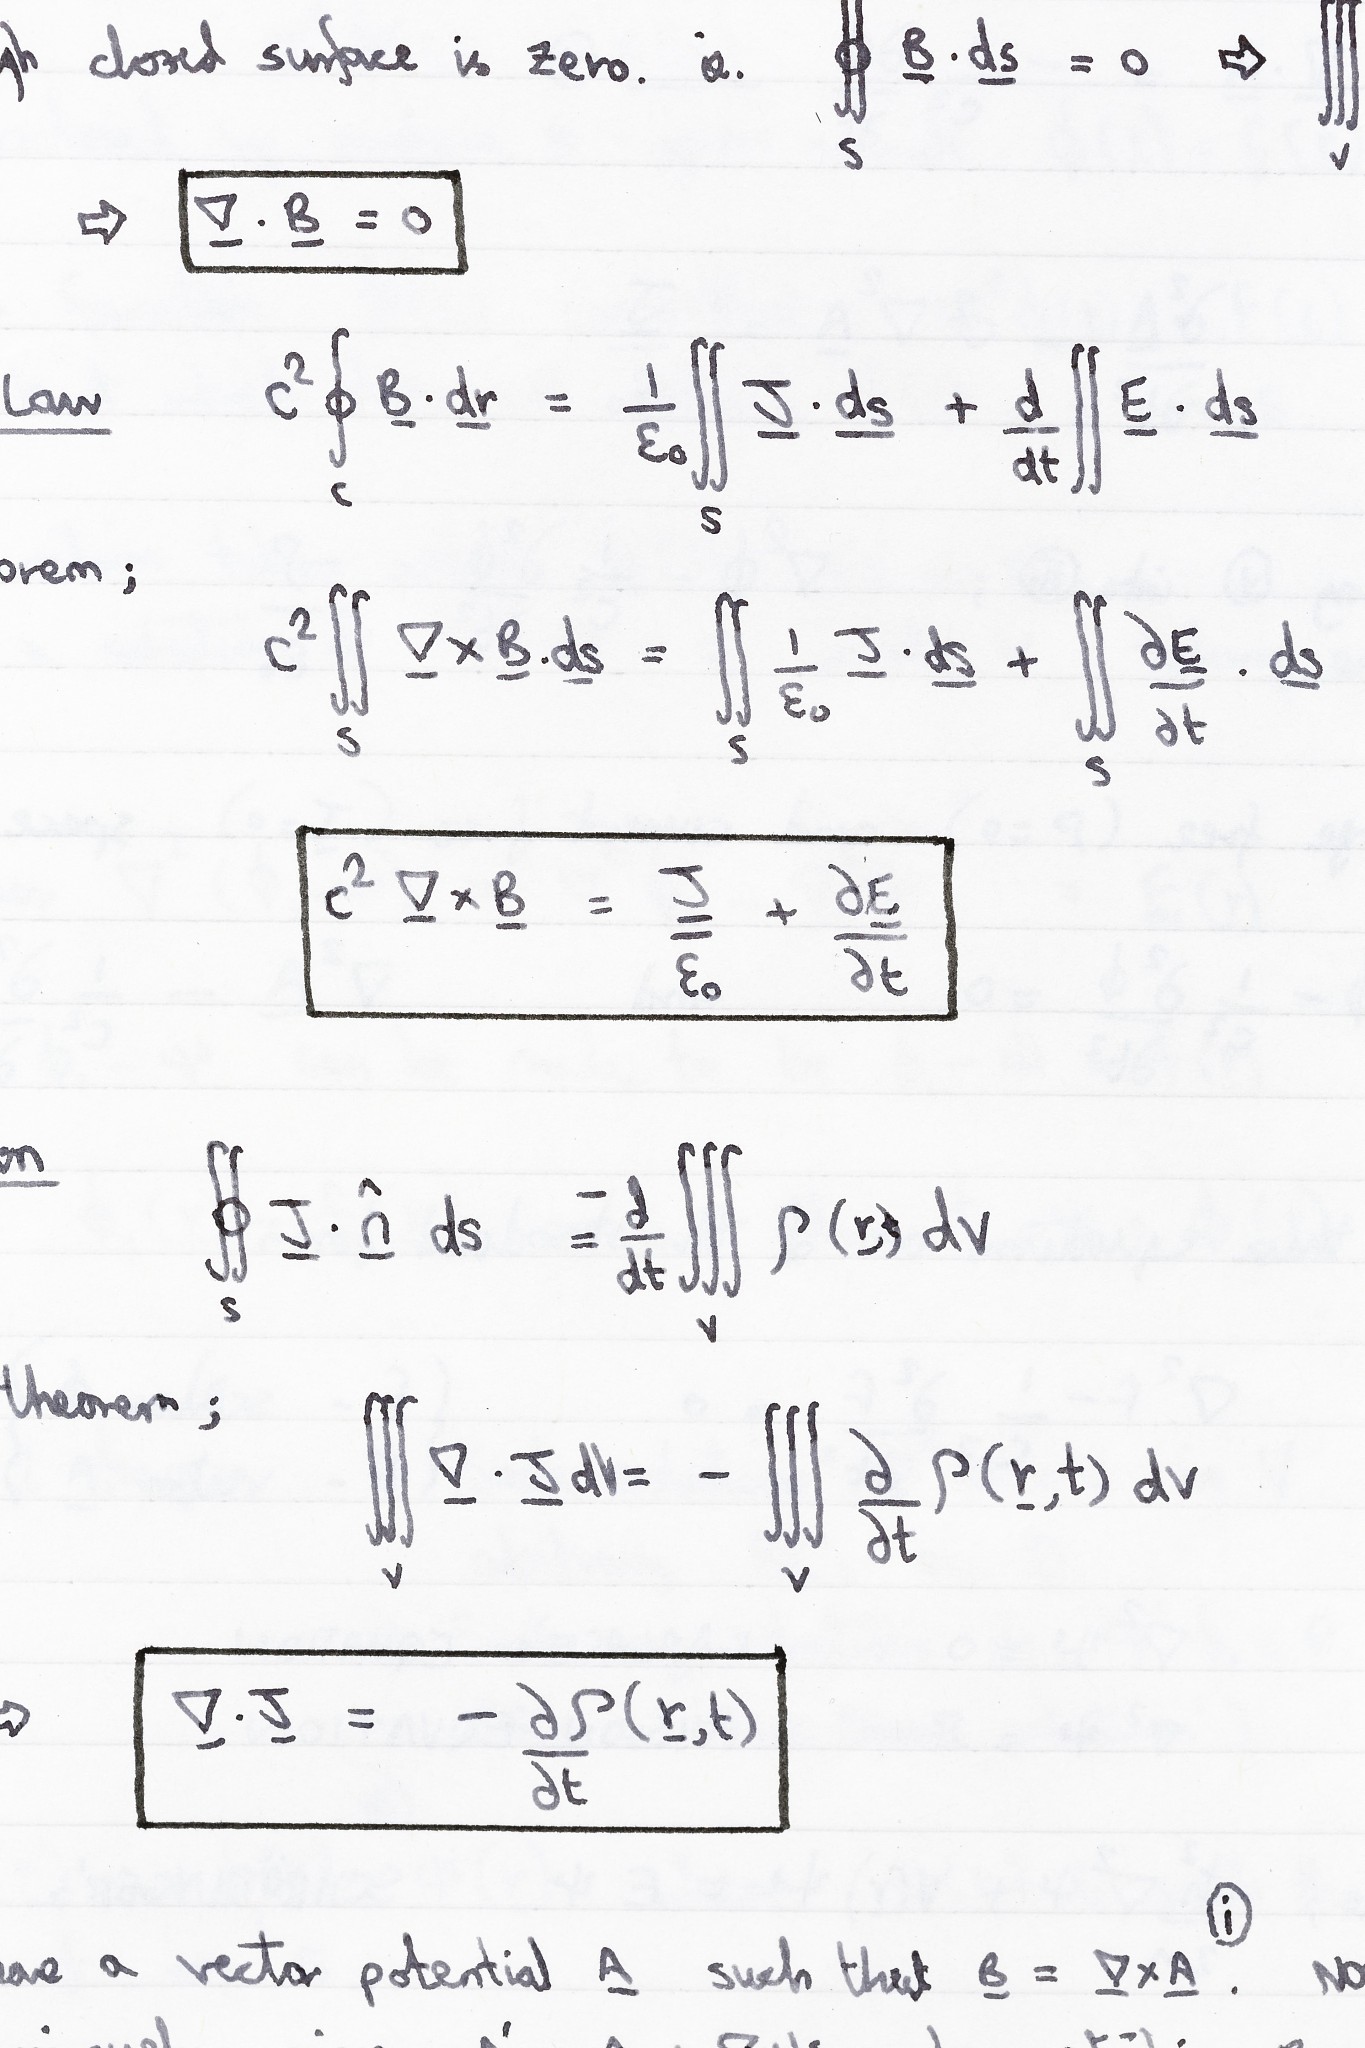 closed surface is zero. ie. ∯_S B · ds = 0 ⇒ ∭_V
⇒ ∇ · B = 0
Law c² ∮_C B · dr = 1/ε₀ ∬_S J · ds + d/dt ∬ E · ds
orem;
c² ∬_S ∇ × B · ds = ∬_S 1/ε₀ J · ds + ∬_S ∂E/∂t · ds
c² ∇ × B = J/ε₀ + ∂E/∂t
on ∯_S J · n̂ ds = - d/dt ∭_V ρ(r,t) dV
theorem;
∭_V ∇ · J dV = - ∭_V ∂/∂t ρ(r,t) dV
⇒ ∇ · J = - ∂ρ(r,t)/∂t
(i)
a vector potential A such that B = ∇ × A .